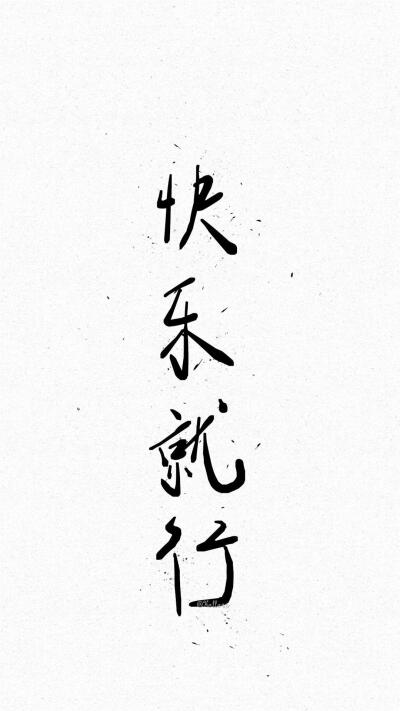 快乐就行